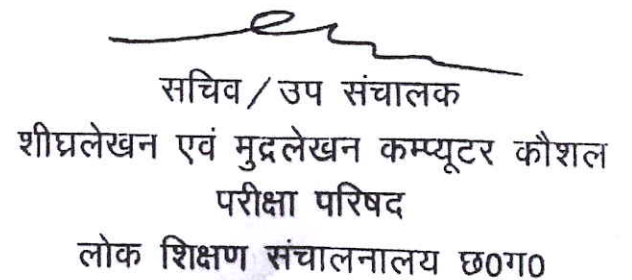 सचिव / उप संचालक
शीघ्रलेखन एवं मुद्रलेखन कम्प्यूटर कौशल
परीक्षा परिषद
लोक शिक्षण संचालनालय छ0ग0